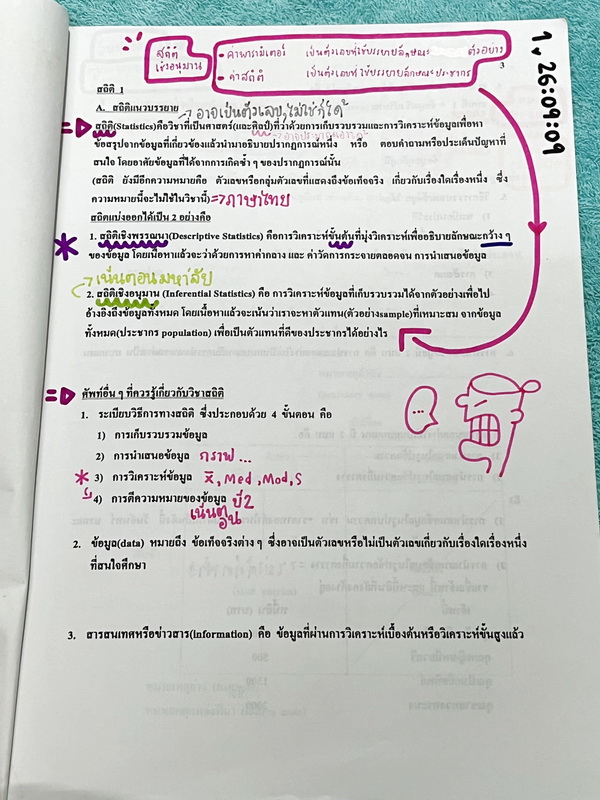 สถิติ
เชิงอนุมาน
- ค่าพารามิเตอร์ เป็นตัวเลขที่ใช้บรรยายลักษณะ ตัวอย่าง
- ค่าสถิติ เป็นตัวเลขที่ใช้บรรยายลักษณะประชากร
3
1 26:09:09
สถิติ 1
A. สถิติแนวบรรยาย
อาจเป็นตัวเลข, ไม่ใช่ก็ได้
สถิติ(Statistics)คือวิชาที่เป็นศาสตร์(และศิลป์)ที่ว่าด้วยการเก็บรวบรวมและการวิเคราะห์ข้อมูลเพื่อหา
ข้อสรุปจากข้อมูลที่เกี่ยวข้องแล้วนำมาอธิบายปรากฏการณ์หนึ่ง หรือ ตอบคำถามหรือประเด็นปัญหาที่
สนใจ โดยอาศัยข้อมูลที่ได้จากการเกิดซ้ำ ๆ ของปรากฏการณ์นั้น
(สถิติ ยังมีอีกความหมายคือ ตัวเลขหรือกลุ่มตัวเลขที่แสดงถึงข้อเท็จจริง เกี่ยวกับเรื่องใดเรื่องหนึ่ง ซึ่ง
ความหมายนี้จะไม่ใช้ในวิชานี้) ⇒ ภาษาไทย
สถิติแบ่งออกได้เป็น 2 อย่างคือ
1. สถิติเชิงพรรณนา(Descriptive Statistics) คือการวิเคราะห์ขั้นต้นที่มุ่งวิเคราะห์เพื่ออธิบายลักษณะกว้าง ๆ
ของข้อมูล โดยเนื้อหาแล้วจะว่าด้วยการหาค่ากลาง และ ค่าวัดการกระจายตลอดจน การนำเสนอข้อมูล
เน้นตอนมหา'ลัย
2. สถิติเชิงอนุมาน (Inferential Statistics) คือ การวิเคราะห์ข้อมูลที่เก็บรวบรวมได้จากตัวอย่างเพื่อไป
อ้างอิงถึงข้อมูลทั้งหมด โดยเนื้อหาแล้วจะเน้นว่าเราจะหาตัวแทน(ตัวอย่างsample)ที่เหมาะสม จากข้อมูล
ทั้งหมด(ประชากร population) เพื่อเป็นตัวแทนที่ดีของประชากรได้อย่างไร
ศัพท์อื่น ๆ ที่ควรรู้เกี่ยวกับวิชาสถิติ
1. ระเบียบวิธีการทางสถิติ ซึ่งประกอบด้วย 4 ขั้นตอน คือ
1) การเก็บรวบรวมข้อมูล
2) การนำเสนอข้อมูล กราฟ ...
3) การวิเคราะห์ข้อมูล x̄, Med, Mod, S
4) การตีความหมายของข้อมูล ปี2
...
2. ข้อมูล(data) หมายถึง ข้อเท็จจริงต่าง ๆ ซึ่งอาจเป็นตัวเลขหรือไม่เป็นตัวเลขเกี่ยวกับเรื่องใดเรื่องหนึ่ง
ที่สนใจศึกษา
3. สารสนเทศหรือข่าวสาร(information) คือ ข้อมูลที่ผ่านการวิเคราะห์เบื้องต้นหรือวิเคราะห์ขั้นสูงแล้ว